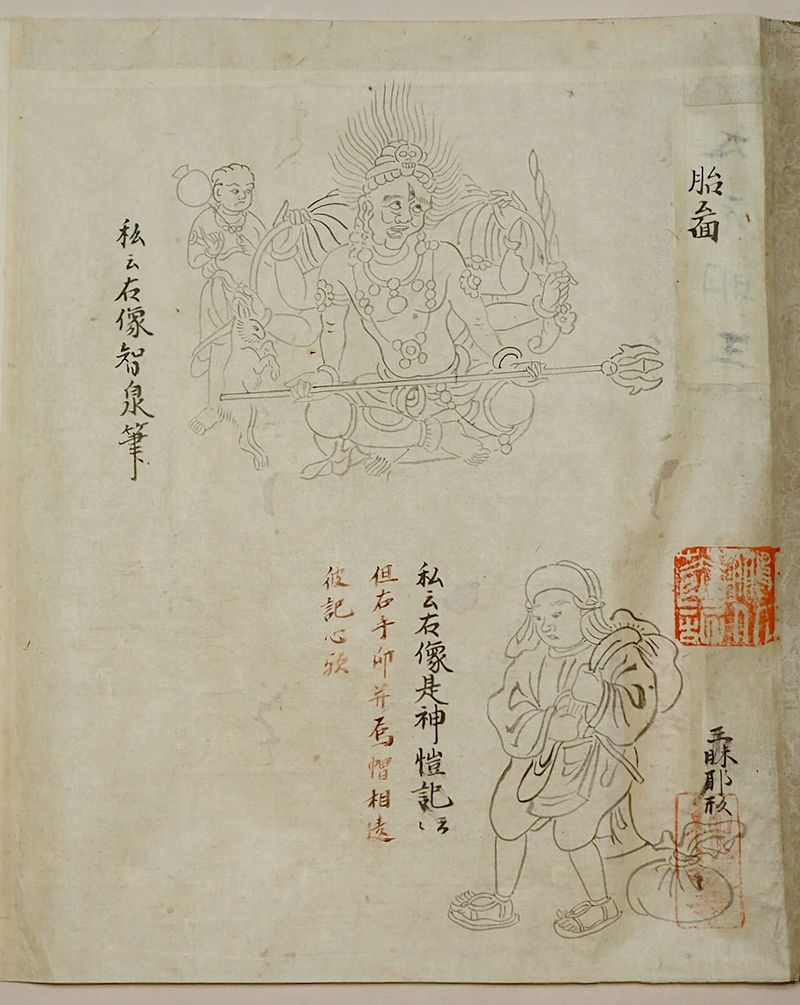 胎啚
私云右像智泉筆
三昧耶形
私云右像是神愷記云々
但右手印并烏帽相違
彼記心歟